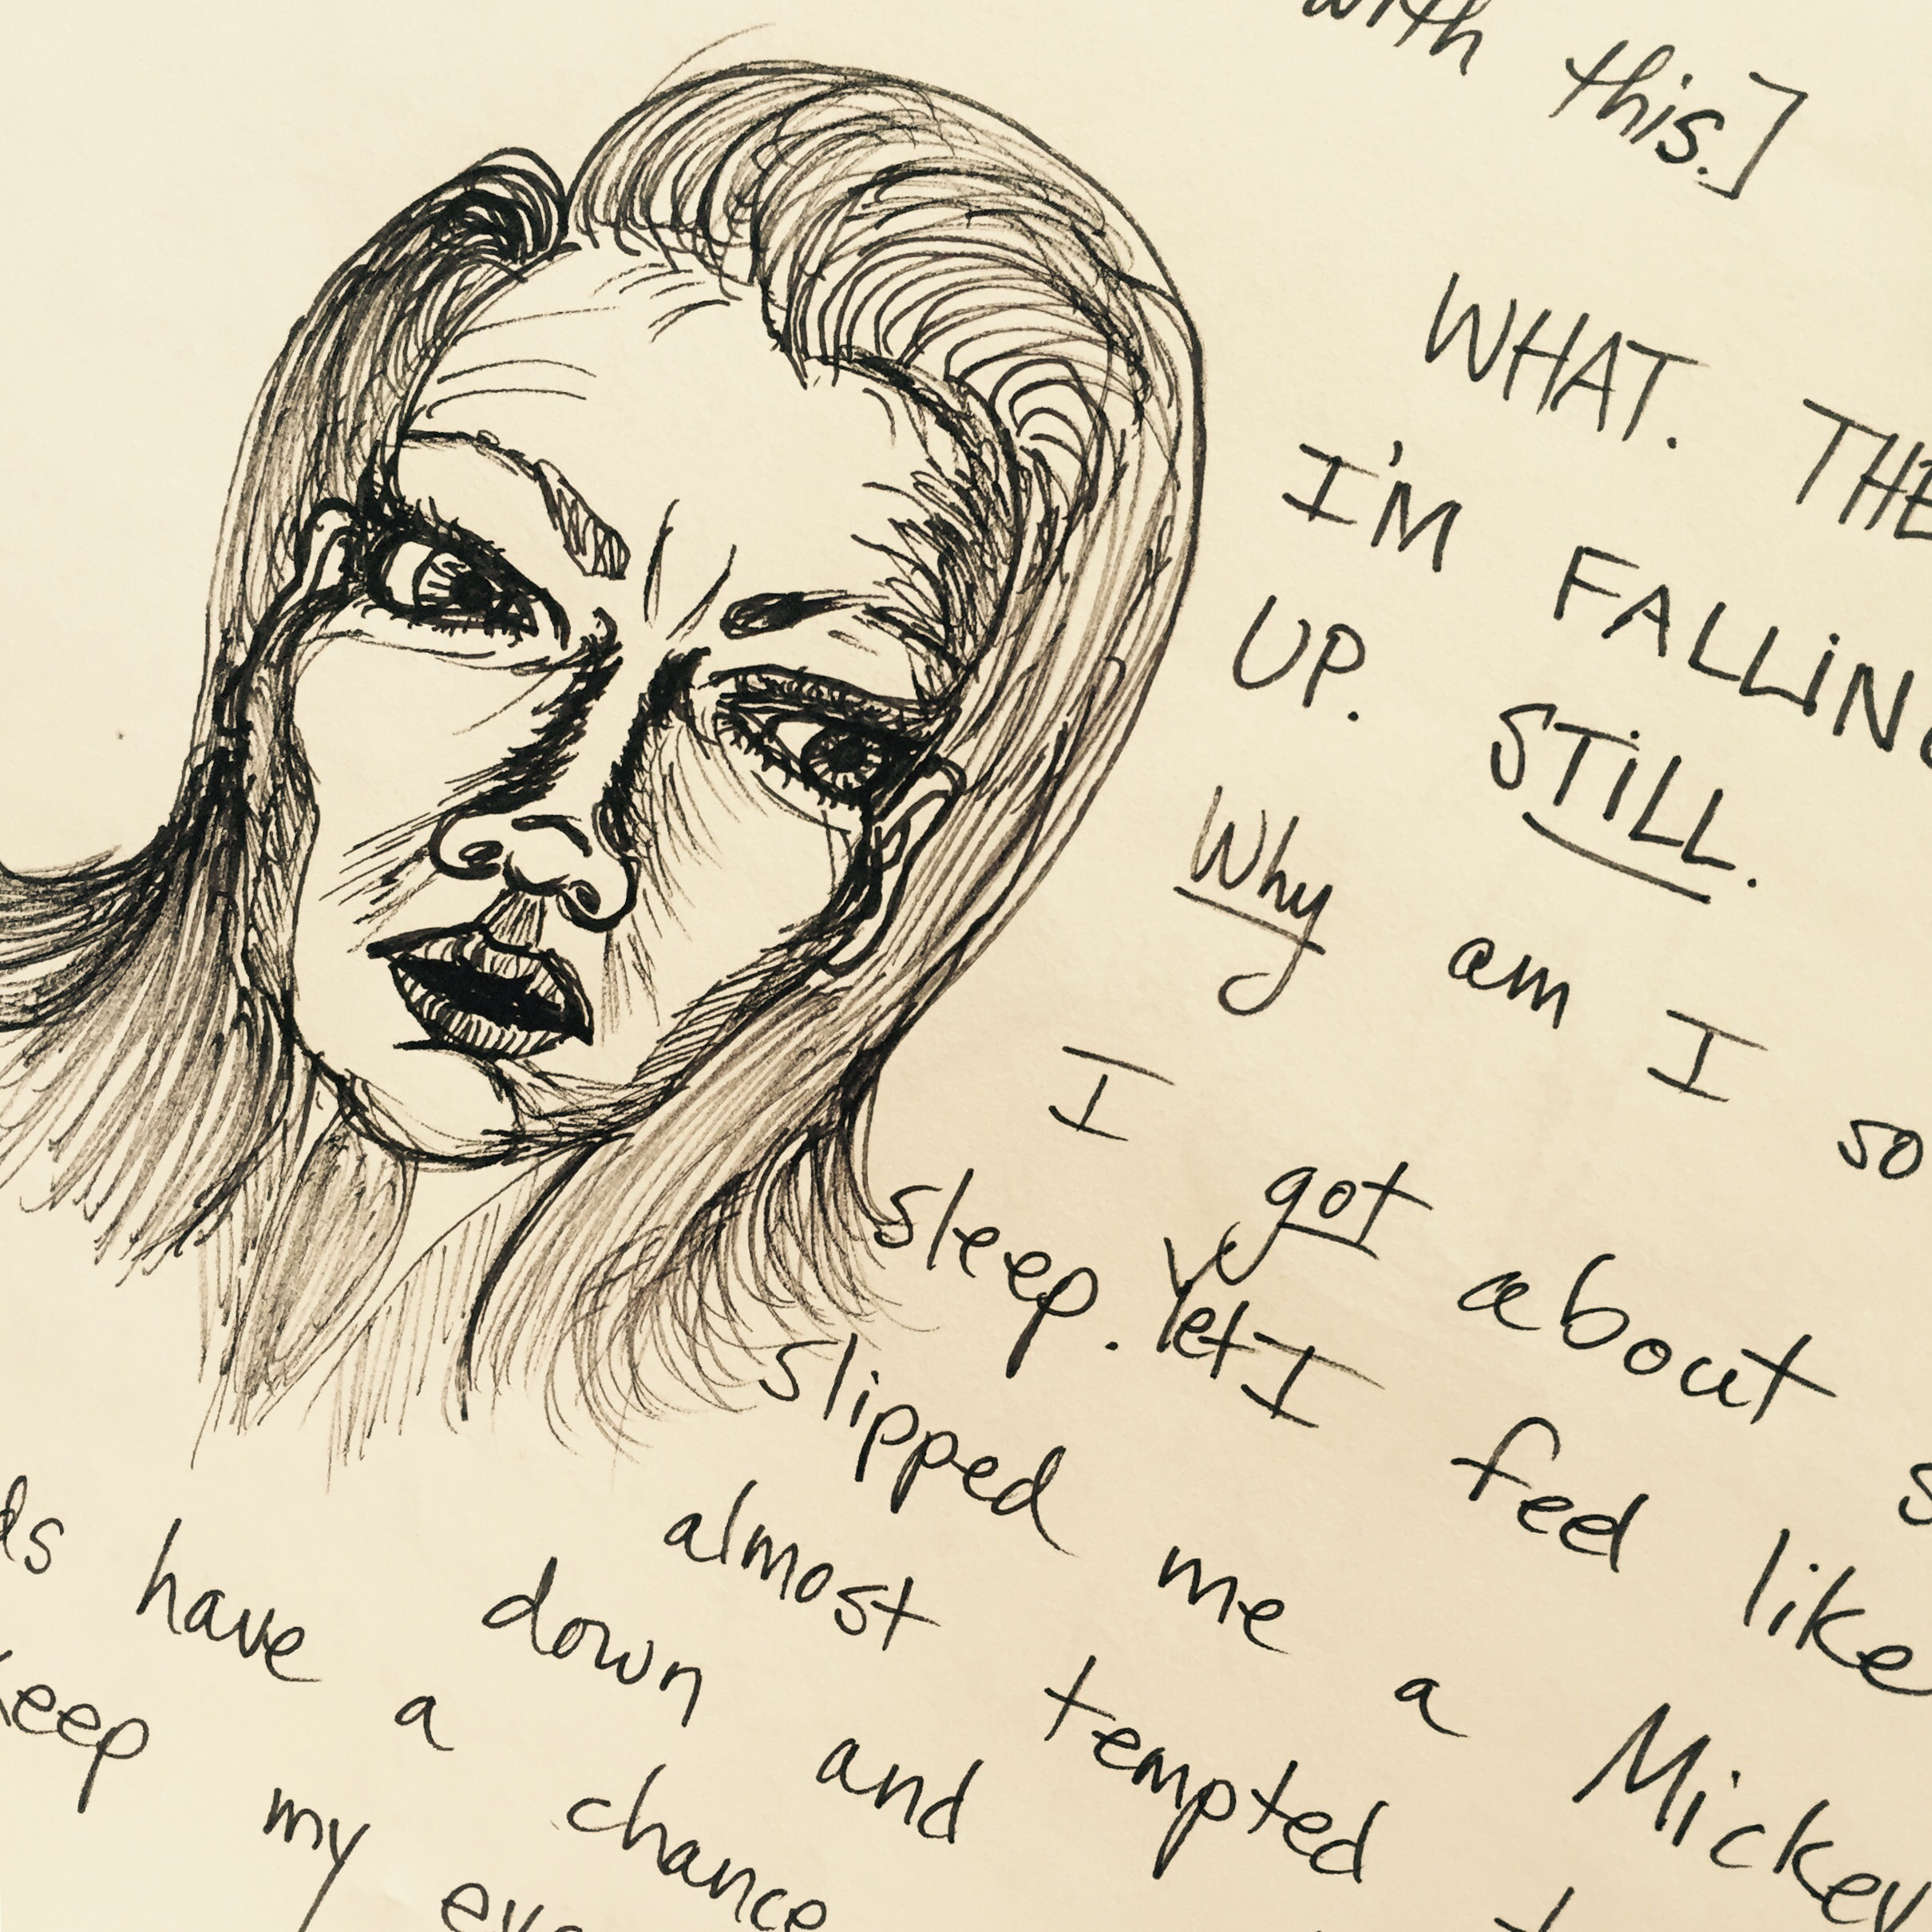 with this.]
WHAT. THE
I'M FALLING
UP. STILL.
Why am I so
I got about s
sleep. Yet I feel like
slipped me a Mickey
almost tempted t
down and
ds have a chance
keep my eye